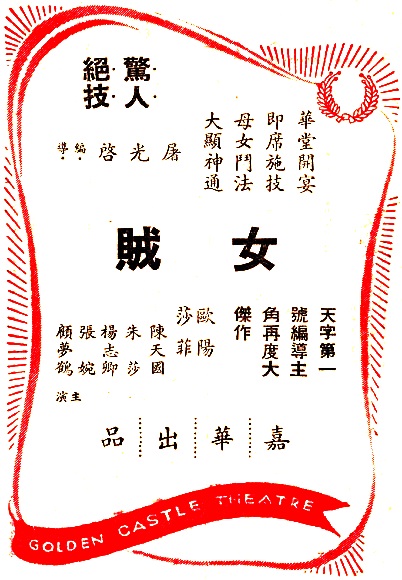 驚人
絕技
華堂開宴
即席施技
母女鬥法
大顯神通
屠光啓
編導
女賊
天字第一
號編導主
角再度大
傑作
歐陽
莎菲
陳天國
朱莎
楊志卿
張婉
顧夢鶴
主演
嘉華出品
GOLDEN CASTLE THEATRE